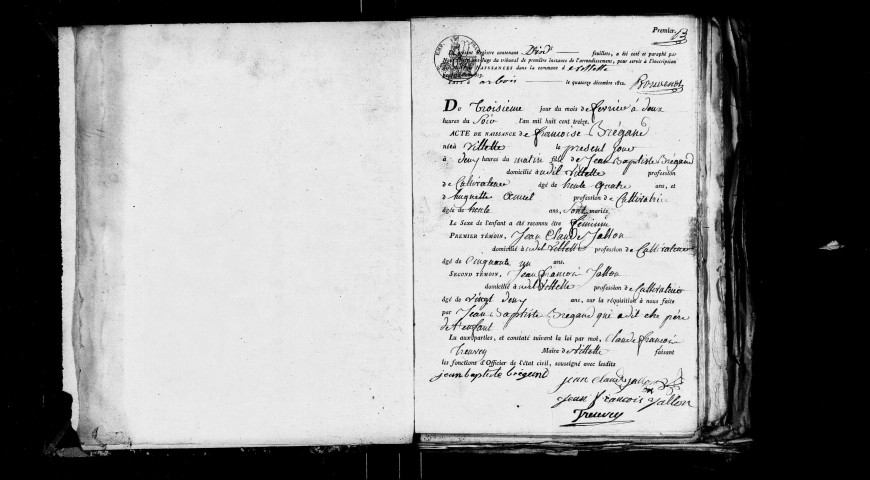 Premier 13
Le présent Registre contenant Dix feuillets, a été coté et paraphé par
Nous Juge du tribunal de première instance de l'arrondissement, pour servir à l'inscription
des NAISSANCES dans la commune d villette
arbois le quatorze décembre 1812.
Du troisieme jour du mois de fevrier à deux
heures du Soir l'an mil huit cent treize.
ACTE DE NAISSANCE de francoise Brégand
née à villette le present jour
à deux heures du matin fille de Jean Baptiste Brégand
domicilié audit villette profession
de Cultivateur âgé de trente quatre ans, et
d'huguette profession de Cultivatrice
âgée de trente ans, Sont mariés
Le Sexe de l'enfant a été reconnu être féminin
PREMIER TÉMOIN, Jean Claude Jallon
domicilié audit villette profession de Cultivateur
âgé de Cinquante un ans.
SECOND TÉMOIN, Jean francois Jallon
domicilié audit villette profession de Cultivateur
âgé de vingt deux ans, sur la réquisition à nous faite
par Jean Baptiste Brégand qui a dit etre père
de l'enfant
Lu aux parties, et constaté suivant la loi par moi, Claude francois
Treuvey Maire de villette faisant
les fonctions d'Officier de l'état civil, soussigné avec lesdits
jean baptiste brégent
jean claude jallon
Jean francois Jallon
Treuvey